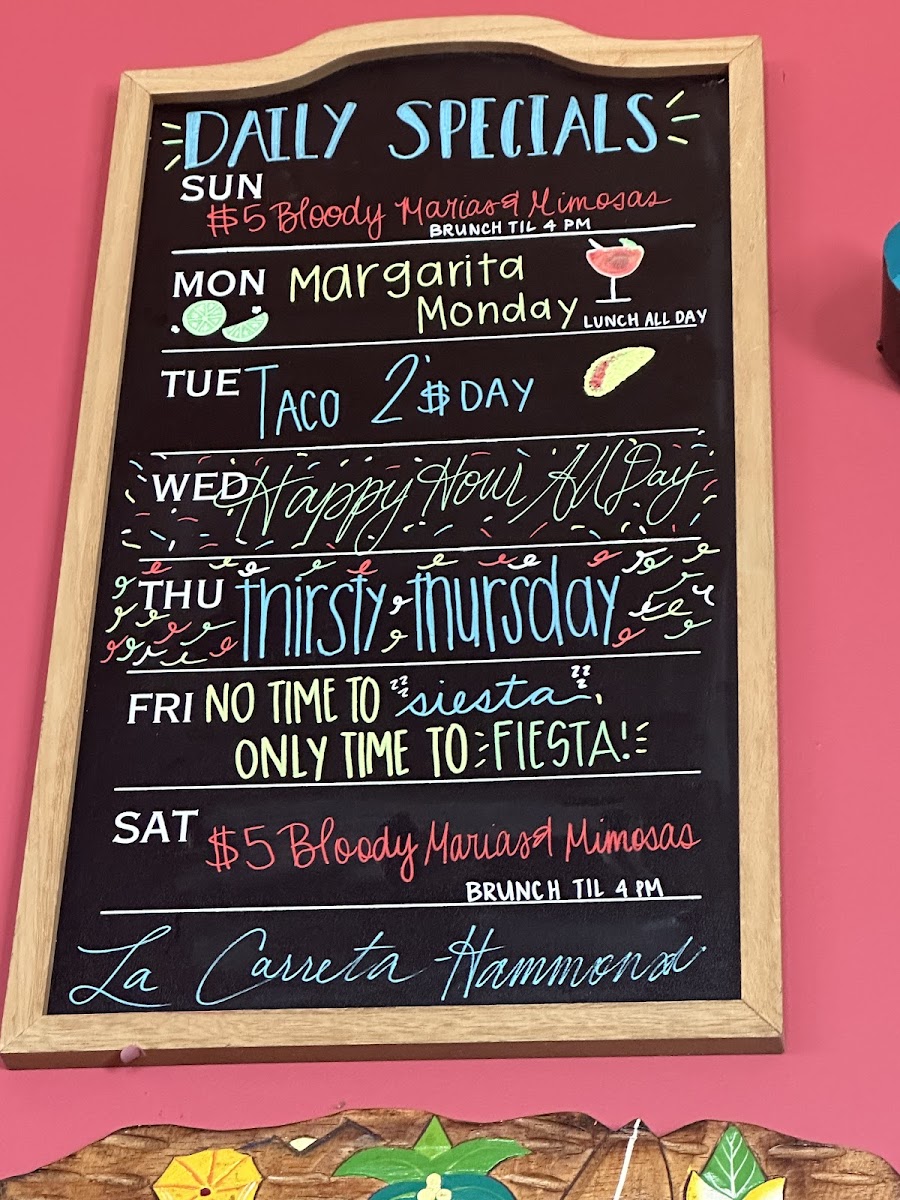 DAILY SPECIALS
SUN
$5 Bloody Marias & Mimosas
BRUNCH TIL 4 PM
MON Margarita
Monday LUNCH ALL DAY
TUE TACO 2'$DAY
WED Happy Hour All Day
THU thirsty thursday
FRI NO TIME TO zzz siesta zzz,
ONLY TIME TO FIESTA!
SAT $5 Bloody Marias & Mimosas
BRUNCH TIL 4 PM
La Carreta Hammond